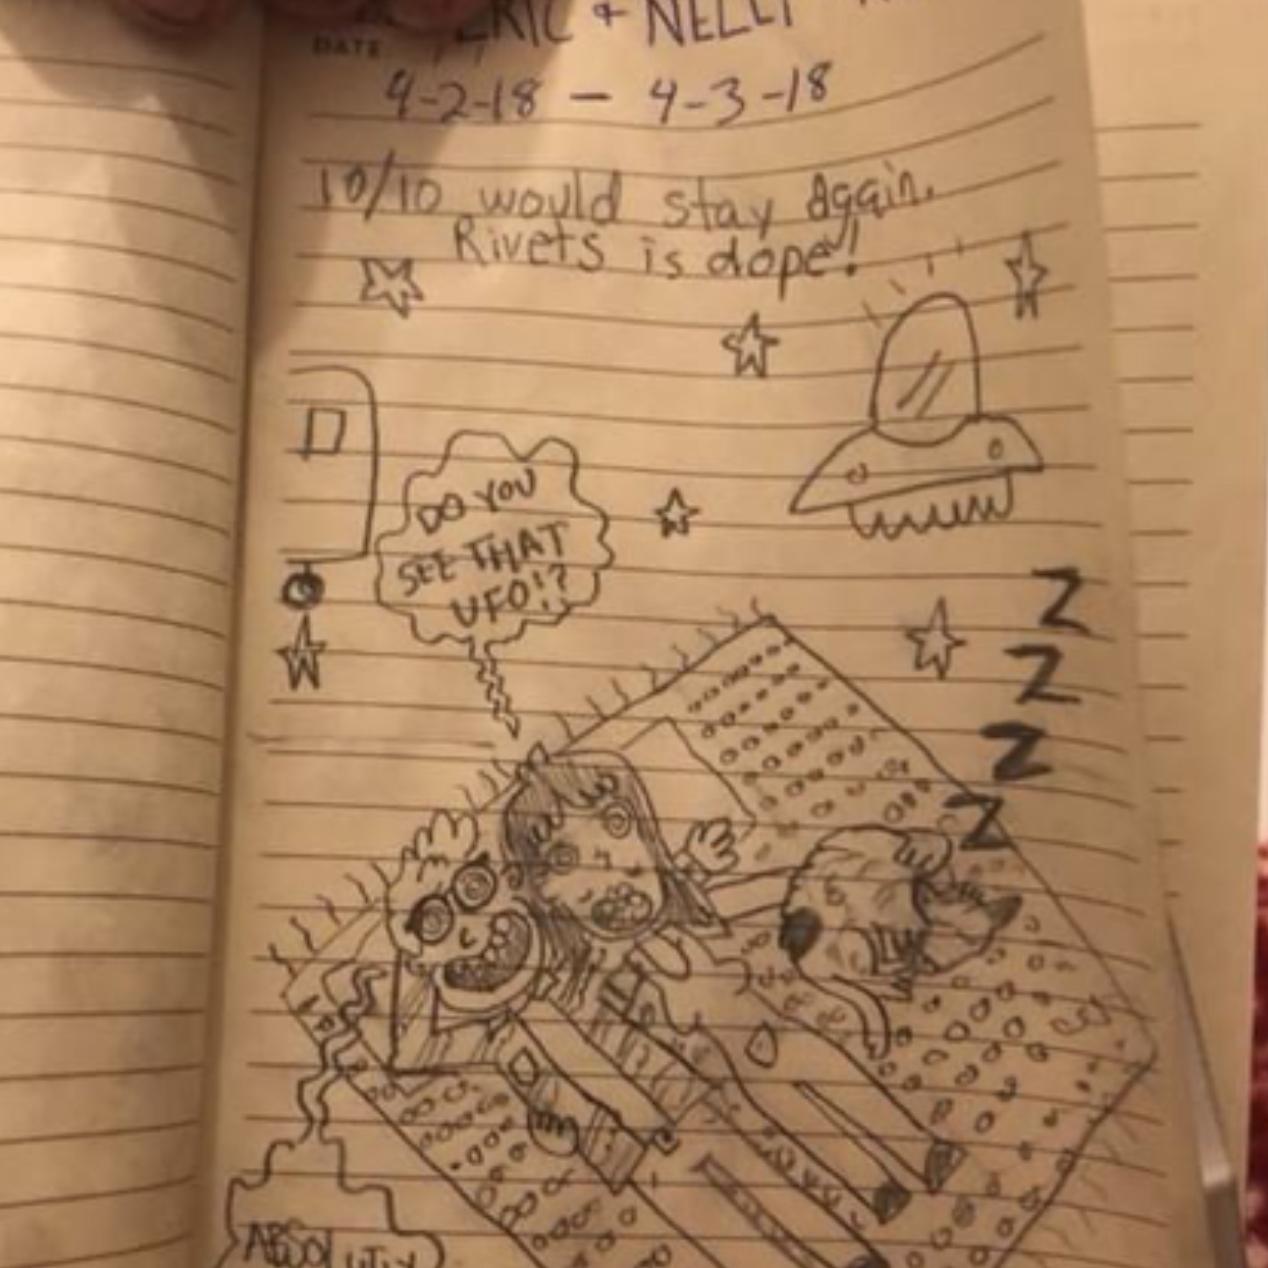 ERIC + NELLY
DATE
4-2-18 — 4-3-18
10/10 would stay Again.
Rivets is dope!
DO YOU
SEE THAT
UFO!?
Z
Z
Z
Z
ABSOLUTLY